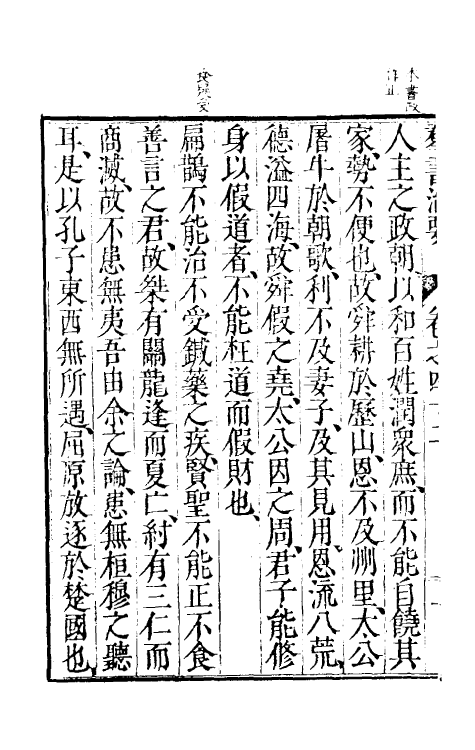 本書政
作正
食疑受
羣書治要　卷之四十二
人主之政朝以和百姓潤衆庶、而不能自饒其
家、勢不便也、故舜耕於歷山、恩不及州里、太公
屠牛於朝歌、利不及妻子、及其見用、恩流八荒、
德溢四海、故舜假之堯、太公因之周、君子能修
身以假道者、不能枉道而假財也、
扁鵲不能治不受鍼藥之疾、賢聖不能正不食
善言之君、故桀有關龍逢而夏亡、紂有三仁而
商滅、故不患無夷吾由余之論、患無桓穆之聽
耳、是以孔子東西無所遇、屈原放逐於楚國也、